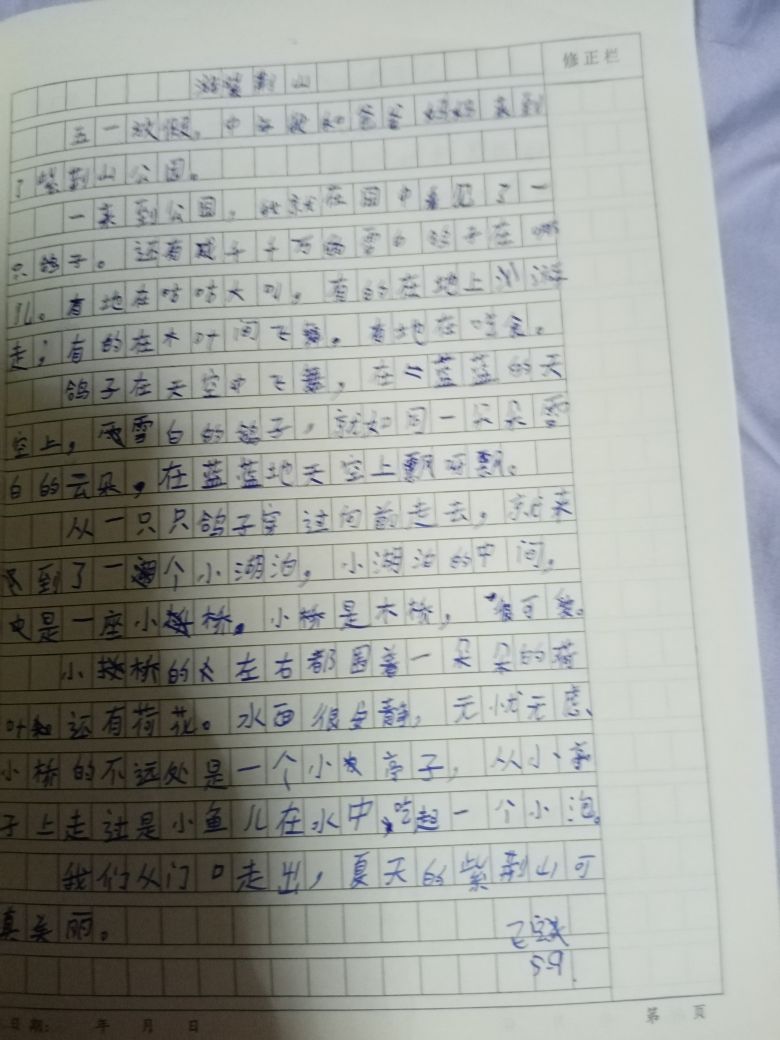 修正栏
游紫荆山
五一放假,中午我和爸爸妈妈来到
了紫荆山公园。
一来到公园,就在园中见了一
只鸽子。还有成千千万的雪白鸽子在
儿。有地在咕咕大叫,有的在地上
走;有的在木叶间飞舞,有地在吃食。
鸽子在天空中飞舞,在蓝蓝的天
空上,雪白的鸽子,就如同一朵朵雪
白的云朵,在蓝蓝地天空上飘。
从一只只鸽子穿过向前走去,就来
到了一个小湖泊,小湖泊的中间,
也是一座小桥。小桥是木桥,很可
小桥的左右都围着一朵朵的荷
叶和还有荷花。水面很安静,无忧无虑、
小桥的不远处是一个小亭子,从小亭
子上走过是小鱼儿在水中吃起一个小泡。
我们从门口走出,夏天的紫荆山可
真美丽。
5.9
日期: 年 月 日
第 页